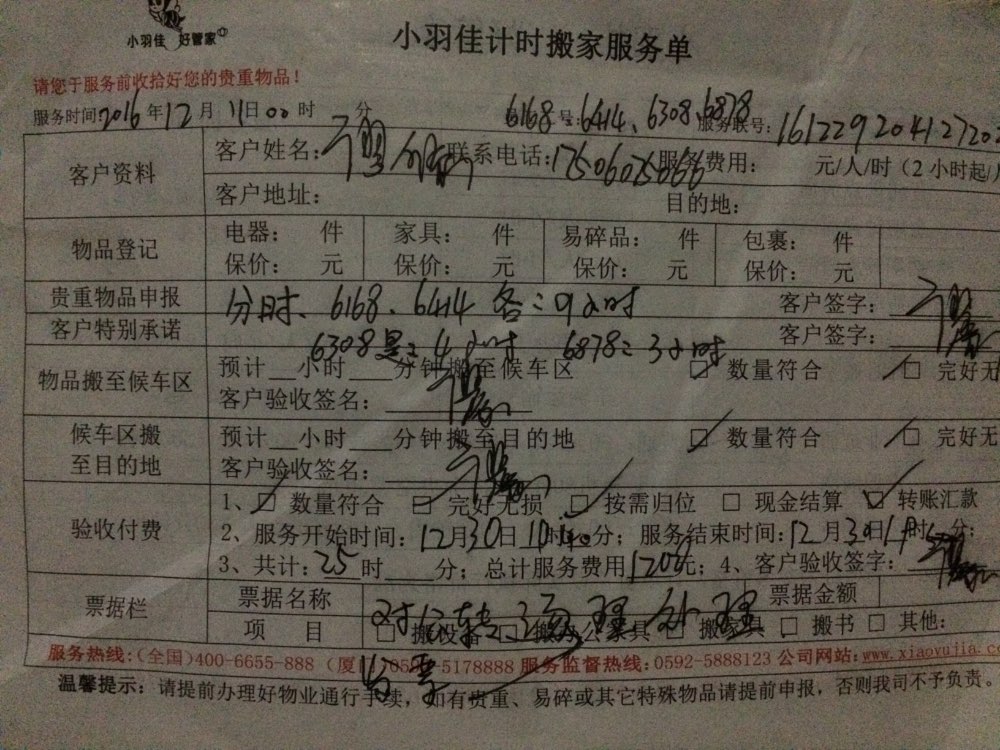 小羽佳 好管家
小羽佳计时搬家服务单
请您于服务前收拾好您的贵重物品！
服务时间2016年12月 日00时 分 6168号:6414、6308、6878 服务联号:
客户资料 客户姓名: 联系电话:17506025666 服务费用: 元/人/时（2小时起
客户地址: 目的地:
物品登记 电器: 件 家具: 件 易碎品: 件 包裹: 件
保价: 元 保价: 元 保价: 元 保价: 元
贵重物品申报 分时、6168、6414 各:9小时 客户签字:
客户特别承诺 6308是:4小时 6878:3小时 客户签字:
物品搬至候车区 预计__小时___分钟搬至候车区 ☑ 数量符合 ☑ 完好无
客户验收签名:
候车区搬至目的地 预计__小时___分钟搬至目的地 ☑ 数量符合 ☑ 完好无
客户验收签名:
验收付费 1、☑ 数量符合 ☑ 完好无损 ☑ 按需归位 □ 现金结算 ☑ 转账汇款
2、服务开始时间:12月30日10时 分；服务结束时间:12月30日 时 分；
3、共计:25时___分；总计服务费用 元；4、客户验收签字:
票据栏 票据名称 票据金额
项 目 □ 搬设 □ 搬办公家具 □ 搬家具 □ 搬书 □ 其他:
服务热线:(全国)400-6655-888 (厦 0592-5178888 服务监督热线:0592-5888123 公司网站:www.xiaoyujia.c
温馨提示: 请提前办理好物业通行手续，如有贵重、易碎或其它特殊物品请提前申报，否则我司不予负责。